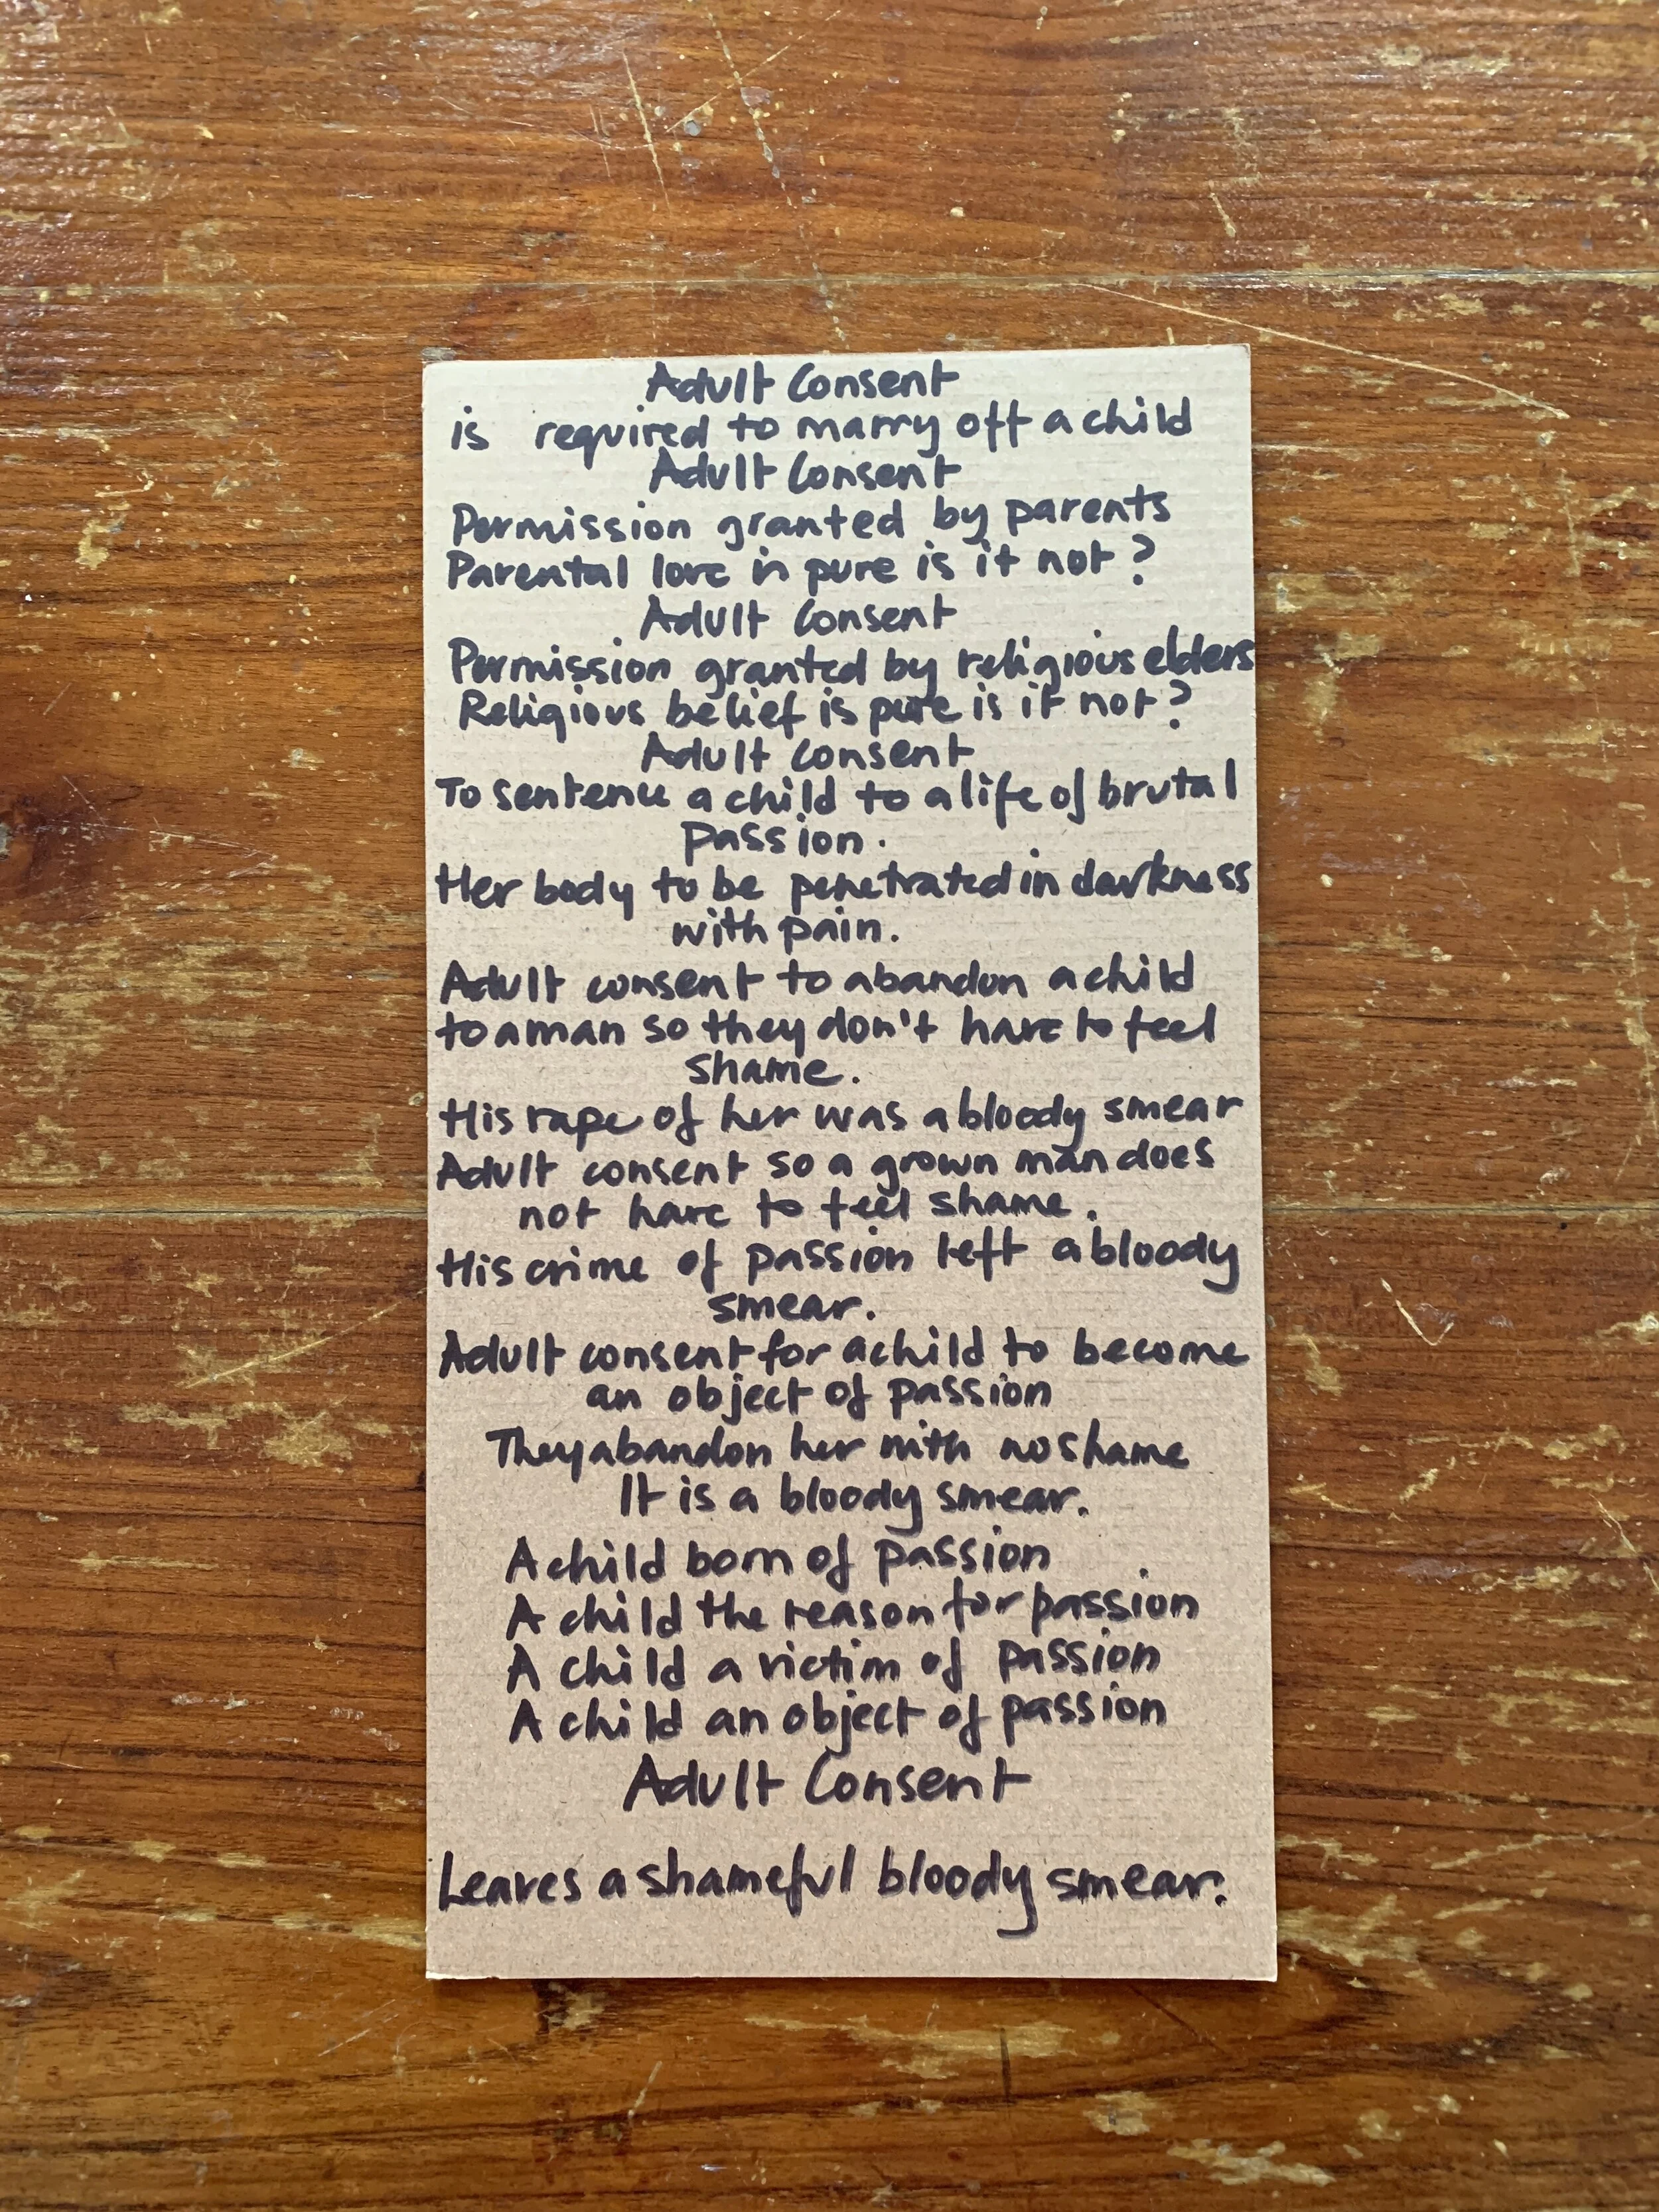 Adult Consent
is required to marry off a child
Adult Consent
Permission granted by parents
Parental love is pure is it not?
Adult Consent
Permission granted by religious elders
Religious belief is pure is it not?
Adult Consent
To sentence a child to a life of brutal
passion.
Her body to be penetrated in darkness
with pain.
Adult consent to abandon a child
to a man so they don't have to feel
shame.
His rape of her was a bloody smear
Adult consent so a grown man does
not have to feel shame.
His crime of passion left a bloody
smear.
Adult consent for a child to become
an object of passion
They abandon her with no shame
It is a bloody smear.
A child born of passion
A child the reason for passion
A child a victim of passion
A child an object of passion
Adult Consent
Leaves a shameful bloody smear.